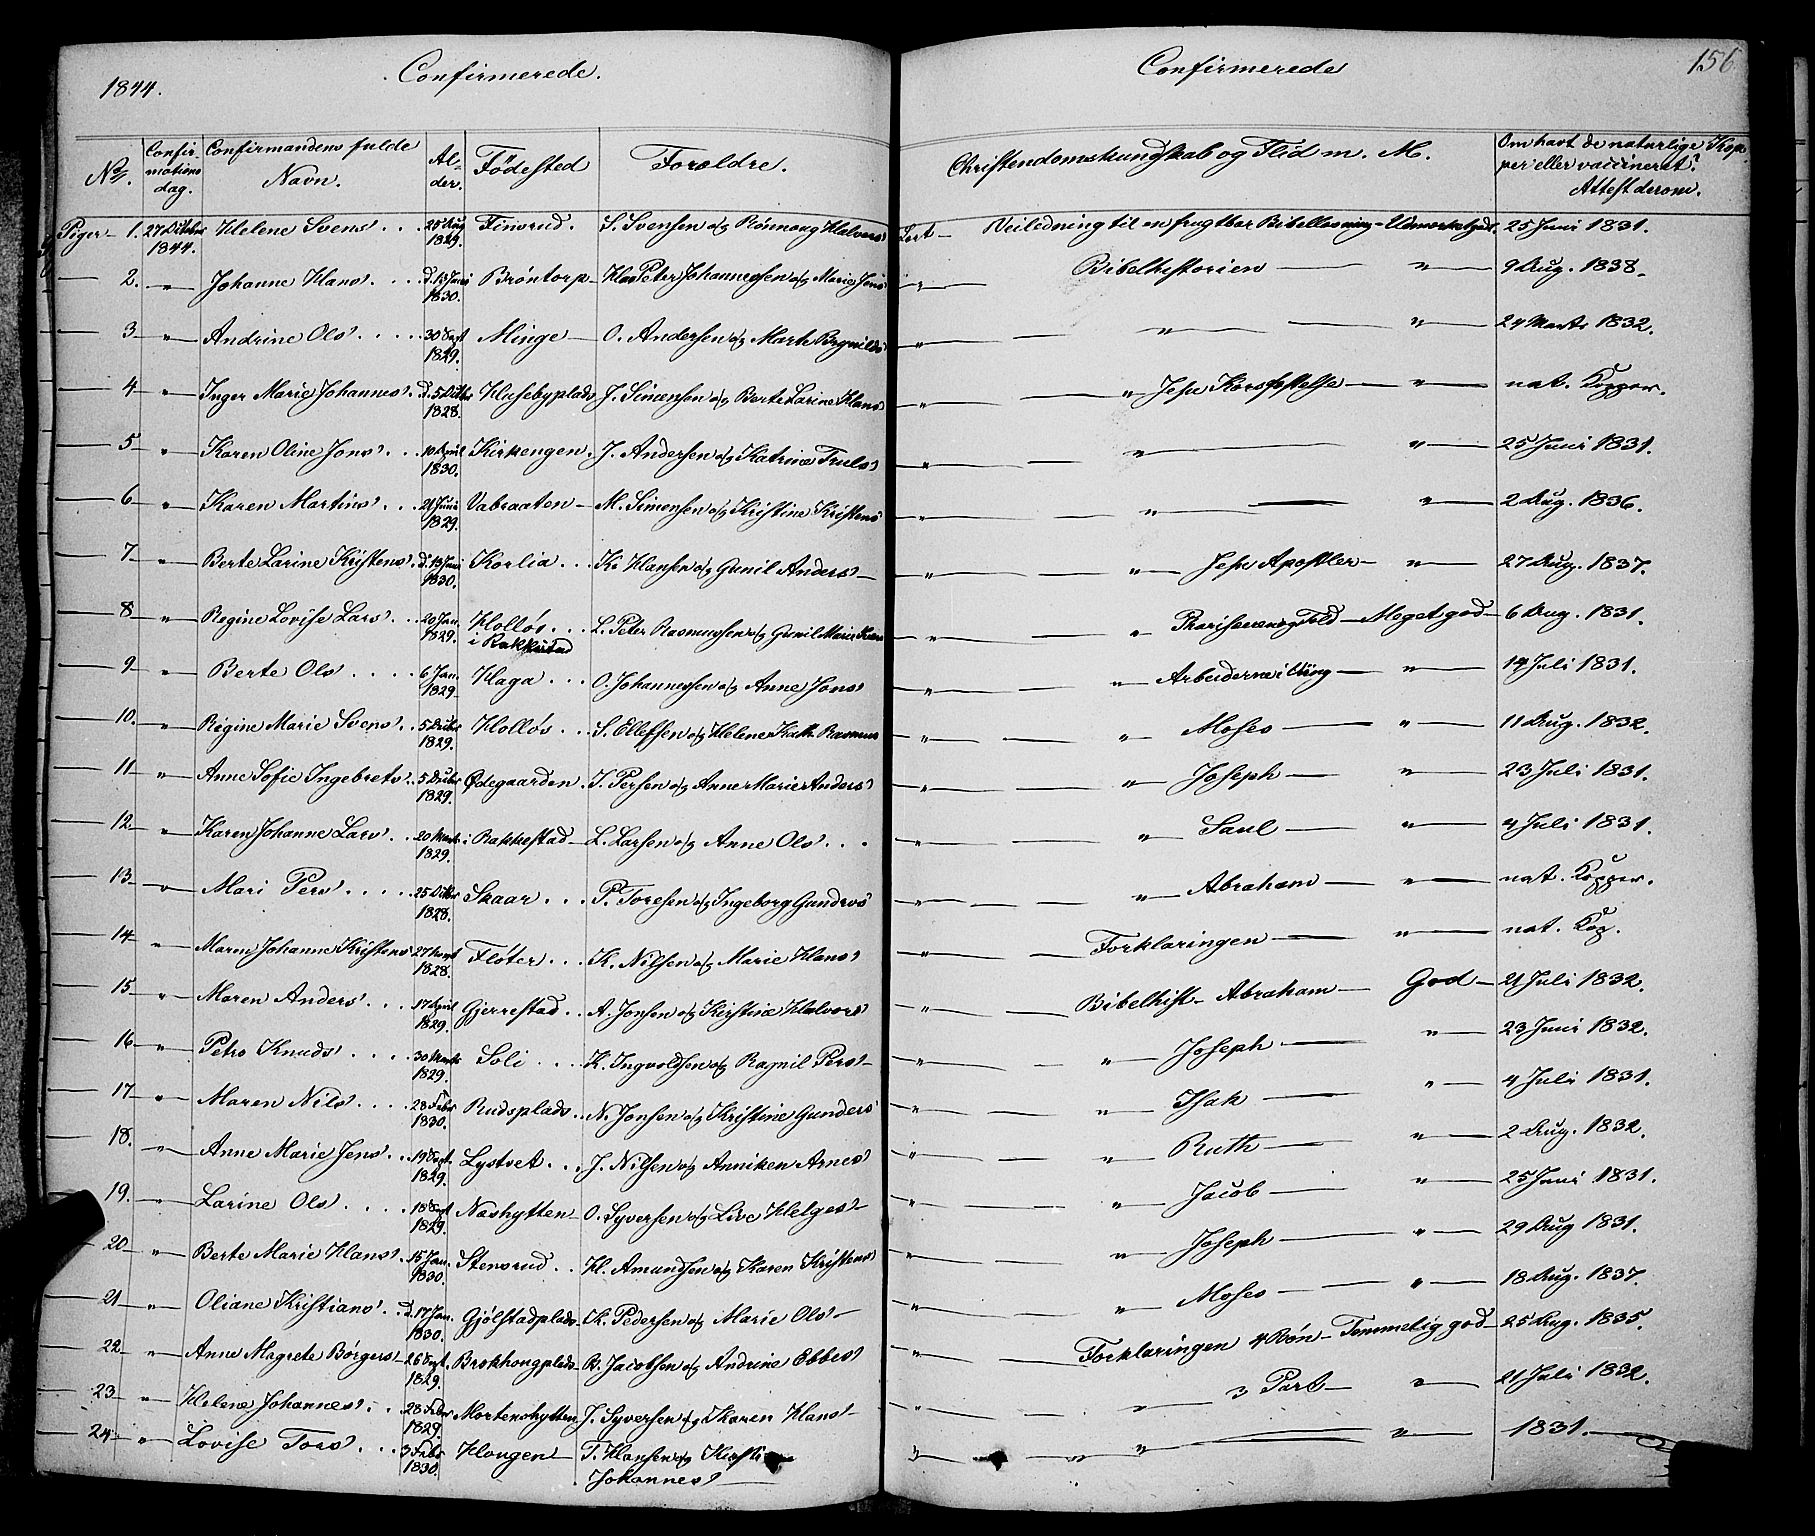 1844. Confirmerede. Confirmerede 156
No. Confirmations dag. Confirmandens fulde Navn. Alder. Födested Forældre. Christendomskundskab og Flid m. M. Om havt de naturlige Kopper eller vaccineret? Attest derom.
Piger 1. 27 Octbr 1844. Helene Svens 1829. Finsrud. S. Svensen og Rönnaug Halvors Veiledning til en frugtbar Bibellæsning 25 Juni 1831.
2. " Johanne Hans 1830. Bröntorp Peter Johannessen og Marie Jens " Bibelhistorien " 9 Aug. 1838
3 " Andrine Ols 30 Sept 1829. Minge O. Andersen og Marte " " " 24 Marts 1832.
4 " Inger Marie Johannes 1828. Husebyplads J. Simensen og Berte Larine Hans " " Jesu Korsfæstelse " nat. Kopper.
5 " Karen Oline Jons 10 April 1830. Kirkengen J. Andersen og Katrine Truls " " " 25 Juni 1831.
6 " Karen Martins 21 Juni 1829. Vabraaten M. Simensen og Kristine Kristens " " " 2 Aug. 1836.
7 " Berte Larine Kristens 1830. Korlia Kr Hansen og Gunil Anders " " Jesu Apostler " 27 Aug. 1837.
8 " Regine Lovise Lars 20 Jan. 1829. Hollös i Rakkestad L. Peter Rasmussen og Gunil Marie " " Meget god 6 Aug. 1831.
9 " Berte Ols 6 Jan. 1829 Haga O. Johannessen og Anne Jons " " " 14 Juli 1831.
10. " Regine Marie Svens 1829. Hollös S. Ellefsen og Helene Kath. Rasmus " " Moses " 11 Aug. 1832.
11 " Anne Sofie Ingebrets 1829. Ødegaarden I. Persen og Anne Marie Anders " " Joseph " 23 Juli 1831.
12 " Karen Johanne Lars 20 Marts 1829. i Rakkestad L. Larsen og Anne Ols " " Saul " 4 Juli 1831.
13 " Mari Pers 1828. Skaar P. Toresen og Ingeborg Gundros " " Abraham " nat. Kopper.
14 " Maren Johanne Kristens 1828. Flöter K. Nilsen og Marie Hans " Forklaringen " nat. Kop.
15 " Maren Anders 17 April 1829. Gjerrestad A. Jonsen og Kirstine Halvors " Bibelhist Abraham God 21 Juli 1832.
16 " Petro Knuds 30 Marts 1829. Soli K. Ingvoldsen og Ragnil Pers " " Joseph " 23 Juni 1832.
17 " Maren Nils 28 Febr 1830. Rudsplads N. Jonsen og Kristine Gunders " " Isak " 4 Juli 1831.
18. " Anne Marie Jens 19 Sept. 1829. Lystvet J. Nilsen og Anniken Arnes " " Ruth " 2 Aug. 1832.
19. " Larine Ols 18 Sept 1829. Næshytten O. Syversen og Live Helges " " Jacob " 25 Juni 1831.
20 " Berte Marie Hans 15 Jan. 1830. Stensrud H. Amundsen og Karen Kristens " " Joseph " 29 Aug 1831.
21 " Oliane Kristians d. 17 Jan. 1830. Gjölstadplads K. Pedersen og Marie Ols " " Moses " 18 Aug. 1837.
22 " Anne Magrete Börgers 26 Sept. 1829. Jacobsen og Andrine Ebbes " Forklaringen 4 Bön Temmelig god 25 Aug. 1835.
23 " Helene Johannes 28 Febr 1829. Mortenshytten J. Syversen og Karen Hans " " 3 Part " 21 Juli 1832.
24 " Lovise Tors 3 Febr 1830. Haugen T. Hansen og Johannes " " " " 1831.